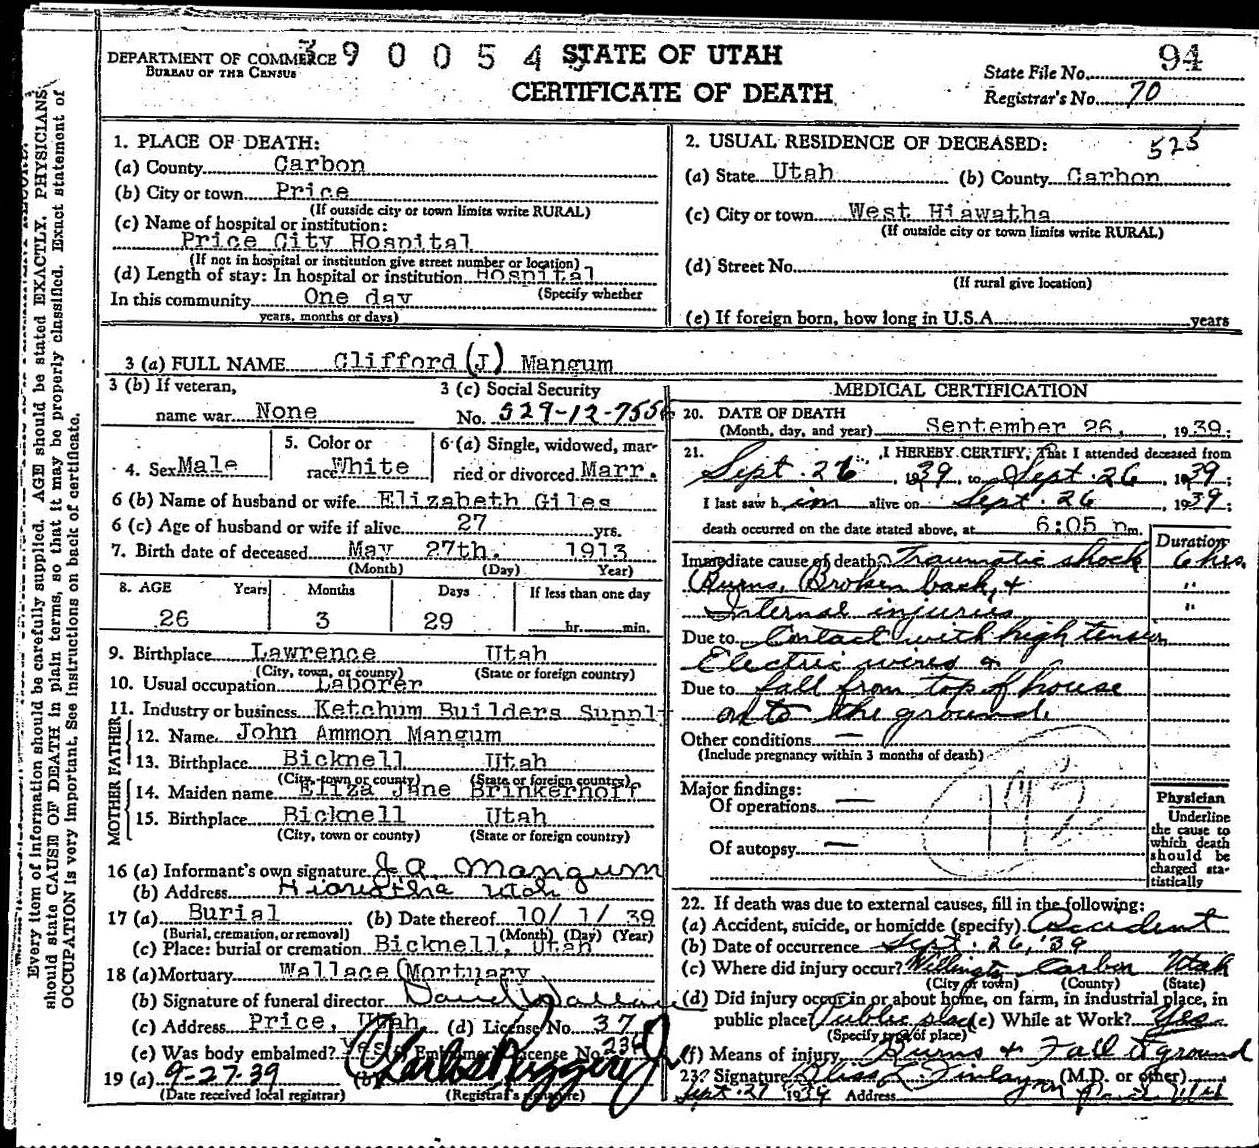 DEPARTMENT OF COMMERCE 390054 STATE OF UTAH 94
BUREAU OF THE CENSUS
CERTIFICATE OF DEATH
State File No.
Registrar's No. 70
1. PLACE OF DEATH:
(a) County Carbon
(b) City or town Price
(If outside city or town limits write RURAL)
(c) Name of hospital or institution:
Price City Hospital
(If not in hospital or institution give street number or location)
(d) Length of stay: In hospital or institution Hospital
(Specify whether
In this community One day
years, months or days)
2. USUAL RESIDENCE OF DECEASED: 525
(a) State Utah (b) County Carbon
(c) City or town West Hiawatha
(If outside city or town limits write RURAL)
(d) Street No.
(If rural give location)
(e) If foreign born, how long in U.S.A. years
3 (a) FULL NAME Clifford (J) Mangum
3 (b) If veteran, 3 (c) Social Security
name war None No. 529-12-7556
4. Sex Male 5. Color or race White 6 (a) Single, widowed, married or divorced Marr.
6 (b) Name of husband or wife Elizabeth Giles
6 (c) Age of husband or wife if alive 27 yrs.
7. Birth date of deceased May 27th. 1913
(Month) (Day) Year)
8. AGE Years Months Days If less than one day
26 3 29 hr. min.
9. Birthplace Lawrence Utah
(City, town, or county) (State or foreign country)
10. Usual occupation Laborer
11. Industry or business Ketchum Builders Supply
FATHER
12. Name John Ammon Mangum
13. Birthplace Bicknell Utah
(City, town or county) (State or foreign country)
MOTHER
14. Maiden name Eliza Jane Brinkerhoff
15. Birthplace Bicknell Utah
(City, town or county) (State or foreign country)
16 (a) Informant's own signature J. A. Mangum
(b) Address Hiawatha Utah
17 (a) Burial (b) Date thereof 10/ 1/ 39
(Burial, cremation, or removal) (Month) (Day) (Year)
(c) Place: burial or cremation Bicknell, Utah
18 (a) Mortuary Wallace (Mortuary
(b) Signature of funeral director
(c) Address Price, Utah (d) License No. 37
(e) Was body embalmed? Yes (f) Embalmer's License No. 236
19 (a) 9-27-39 (b)
(Date received local registrar) (Registrar's signature)
MEDICAL CERTIFICATION
20. DATE OF DEATH
(Month, day, and year) September 26, 1939;
21. I HEREBY CERTIFY, That I attended deceased from
Sept. 26, 1939, to Sept. 26 1939;
I last saw h im alive on Sept. 26 1939;
death occurred on the date stated above, at 6:05 pm.
Duration
Immediate cause of death: Traumatic shock 6 hrs.
Burns, Broken back, & "
Internal injuries "
Due to Contact with high tension
Electric wires &
Due to fall from top of house
onto the ground.
Other conditions —
(Include pregnancy within 3 months of death)
Major findings:
Of operations —
Of autopsy —
Physician
Underline
the cause to
which death
should be
charged sta-
tistically
22. If death was due to external causes, fill in the following:
(a) Accident, suicide, or homicide (specify) Accident
(b) Date of occurrence Sept. 26, '39
(c) Where did injury occur? Wellington Carbon Utah
(City or town) (County) (State)
(d) Did injury occur in or about home, on farm, in industrial place, in
public place? Public place (e) While at Work? Yes
(Specify type of place)
(f) Means of injury Burns & Fall to ground
23. Signature Bliss L. Finlayson (M.D. or other)
Sept. 27 1939 Address Price, Utah
Every item of information should be carefully supplied. AGE should be stated EXACTLY. PHYSICIANS
should state CAUSE OF DEATH in plain terms, so that it may be properly classified. Exact statement of
OCCUPATION is very important. See instructions on back of certificate.